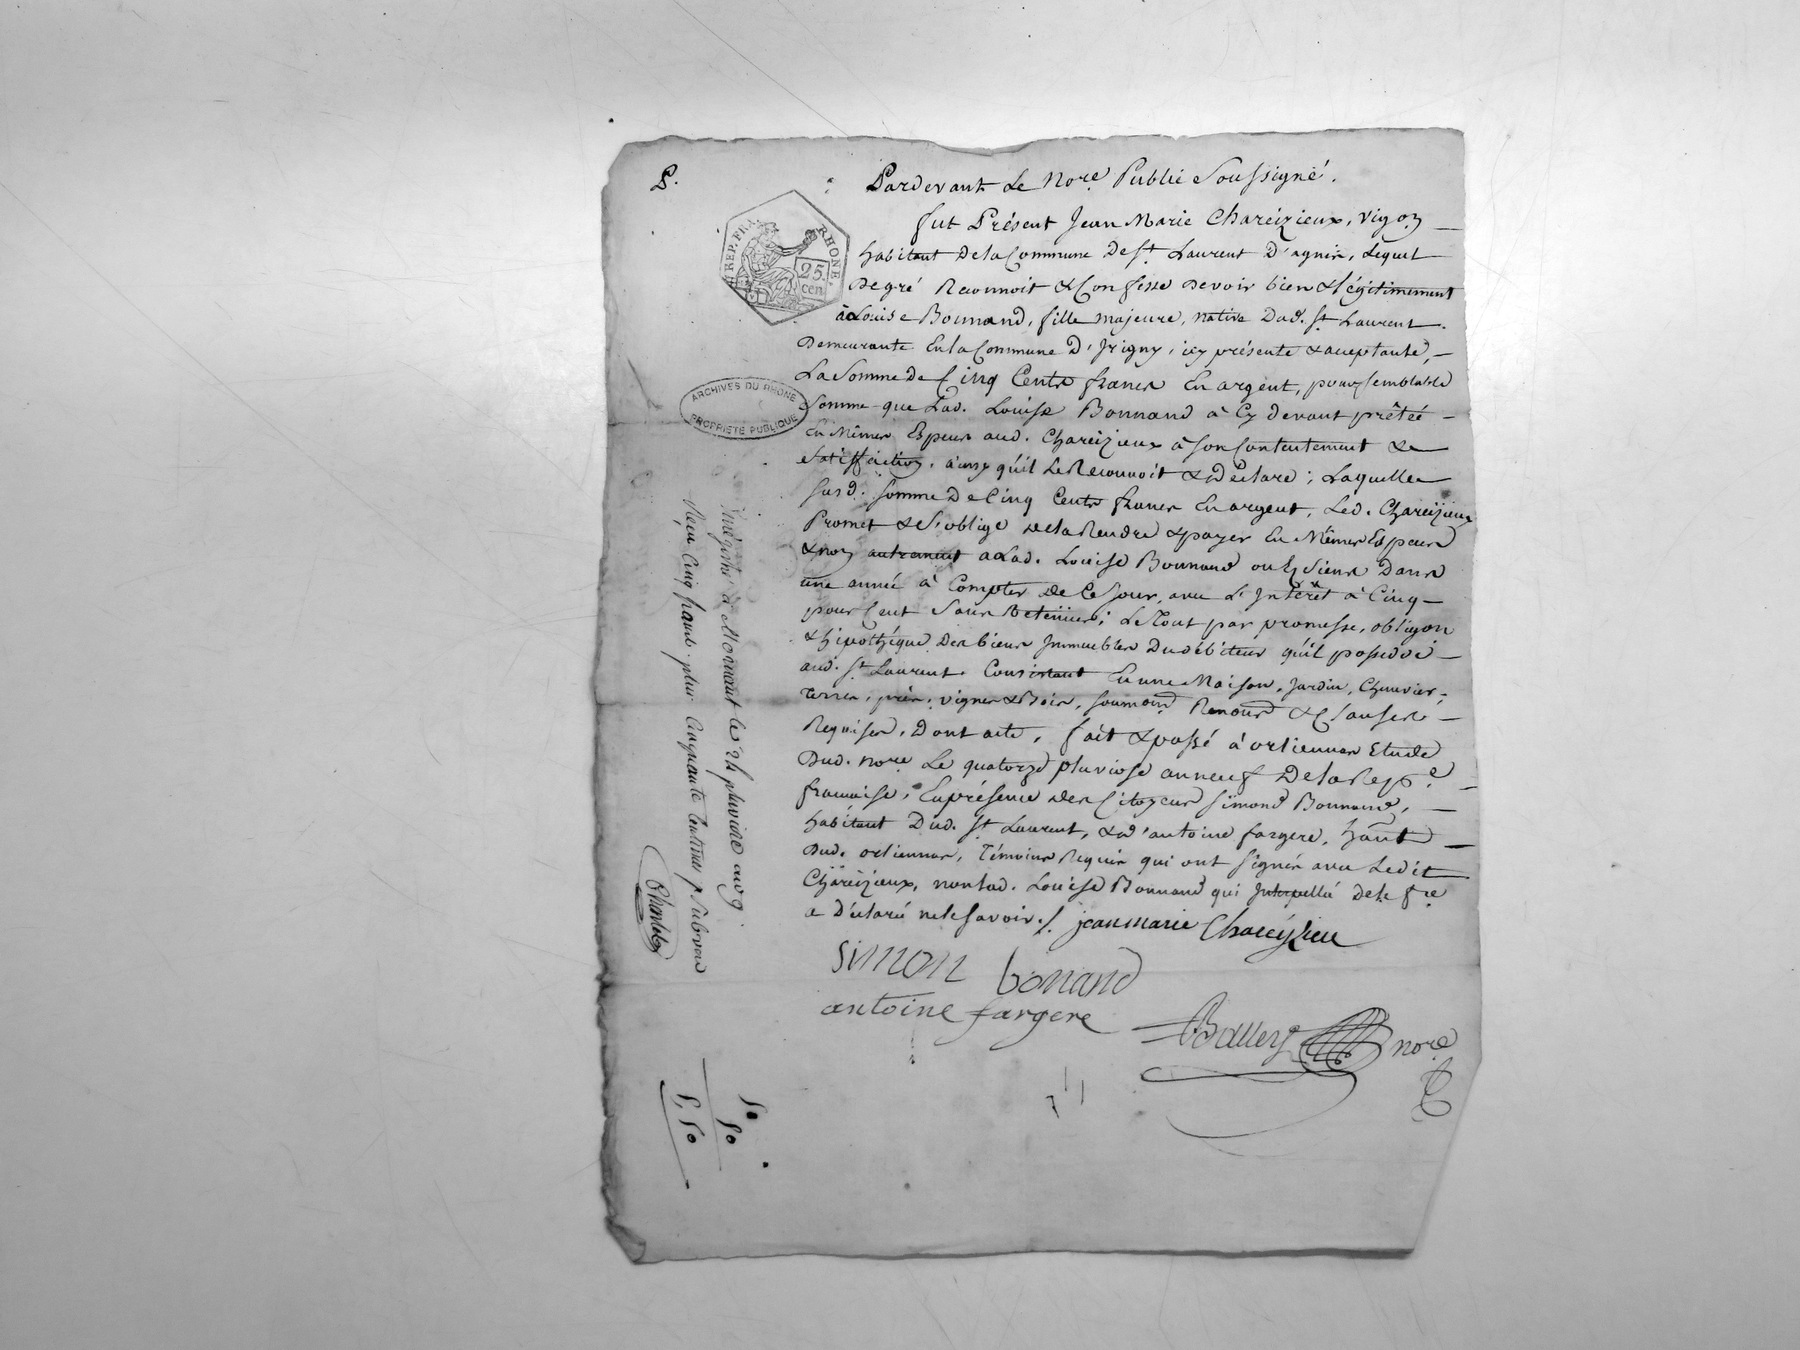 P.
Pardevant Le Nore. Public Soussigné.
fut Présent Jean Marie Chareizieux, Vigon
habitant De la Commune De St. Laurent D'agnin, Lequel
De gré Reconnoit & Confesse Devoir bien & légitimement
à Louise Bonnand, fille majeure, native Dud. St. Laurent
Demeurante En la Commune D'Irigny, icy présente & acceptante,
La Somme De Cinq Cents francs En argent, pour Semblable
Somme que Lad. Louise Bonnand à Cy devant prêtéé
En Mêmes Especes aud. Chareizieux à Son Contentement &
Satisffaction, ainsy qu'il Le Reconnoit & Déclare ; Laquelle
Susd. Somme De Cinq Cents francs En argent, Led. Chareizieux
Promet & S'oblige De la Rendre & payer En Mêmes Especes
& non autrement a Lad. Louise Bonnand ou Es Siens Dans
une année à Compter De Ce Jour, avec L'Intérêt à Cinq
pour Cent Sans Retenue ; Le Tout par promesse, obligon
& hipothéque Des biens Immeubles Du débiteur qu'il possede
aud. St. Laurent. Consistant En une Maison, Jardin, Chenvier,
Terres, prés, vignes & Bois, Soumons Renonc & Clauses
Requises, Dont acte, fait & passé à orlienas Etude
Dud. Nore. Le quatorze pluviose an neuf De la Repe.
francaise, En présence Des Citoyens Simond Bonnand,
habitant Dud. St. Laurent, & d'antoine fargere, hant
Dud. orlienas, Témoins Requis qui ont Signés avec Ledit
Chareizieux, non lad. Louise Bonnand qui Interpellée De le fre
a Déclaré ne le Savoir ./. jean marie Chareyzieu
Simon bonand
antoine fargere
Balley nore
REP. FRA.
RHONE.
25
cen.
ARCHIVES DU RHONE
PROPRIETE PUBLIQUE
Enregistré à Mornant le 24 pluviose an 9
Reçu Cinq francs plus Cinquante Centimes p. Subvon
50
50
5,50